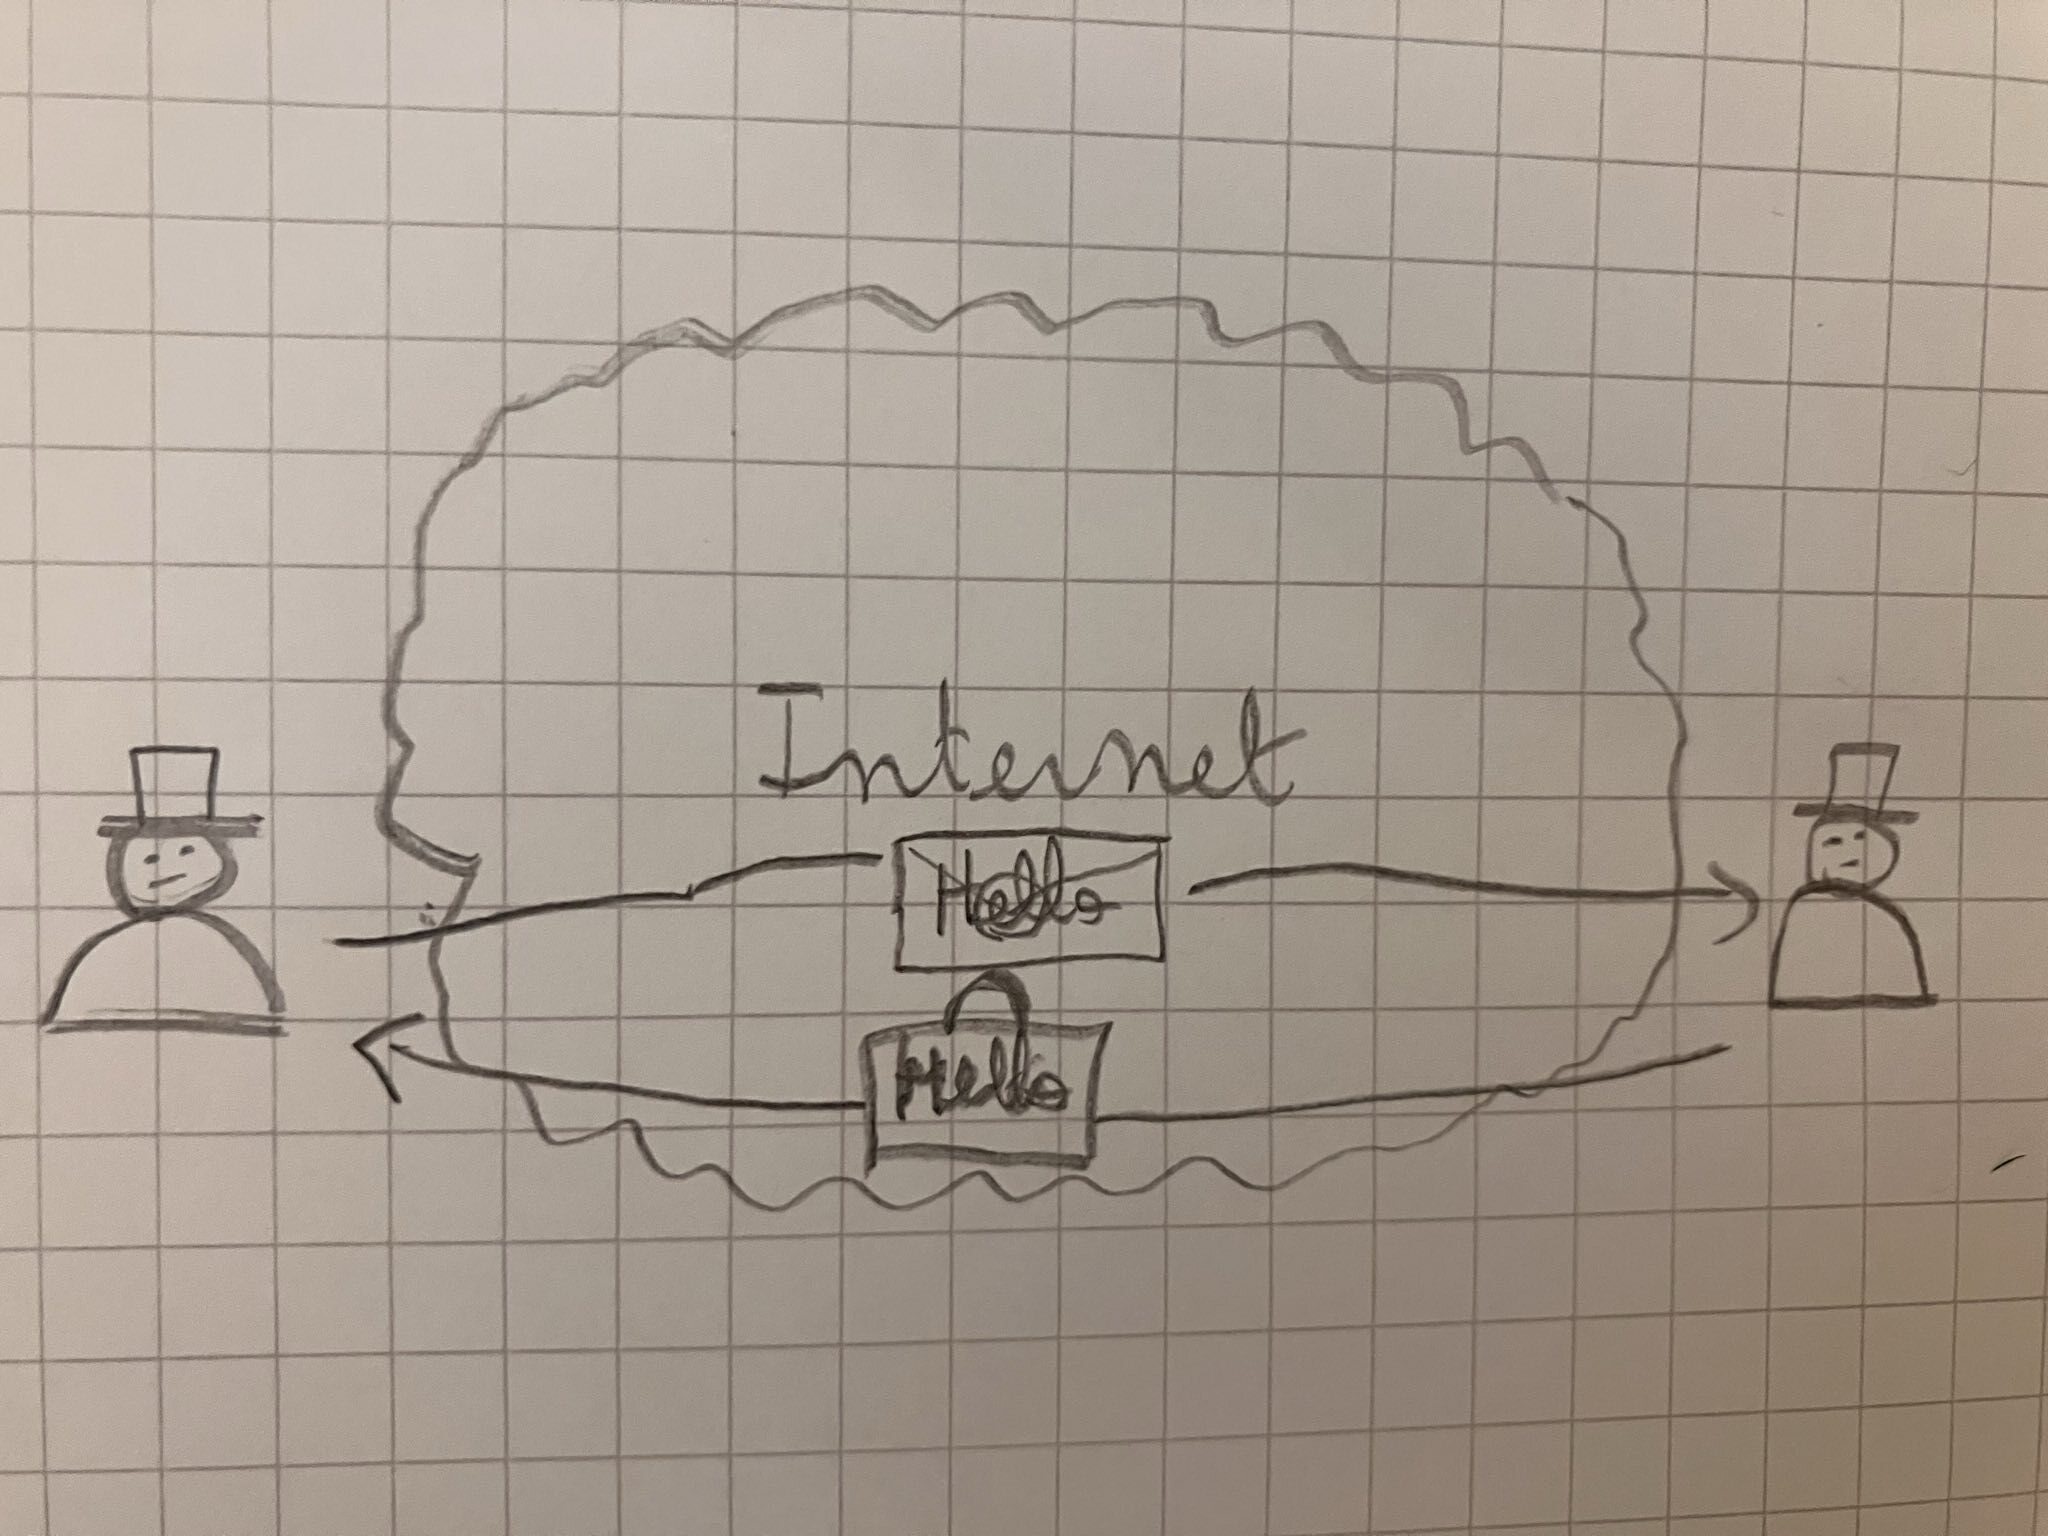 Internet
Hello
Hello